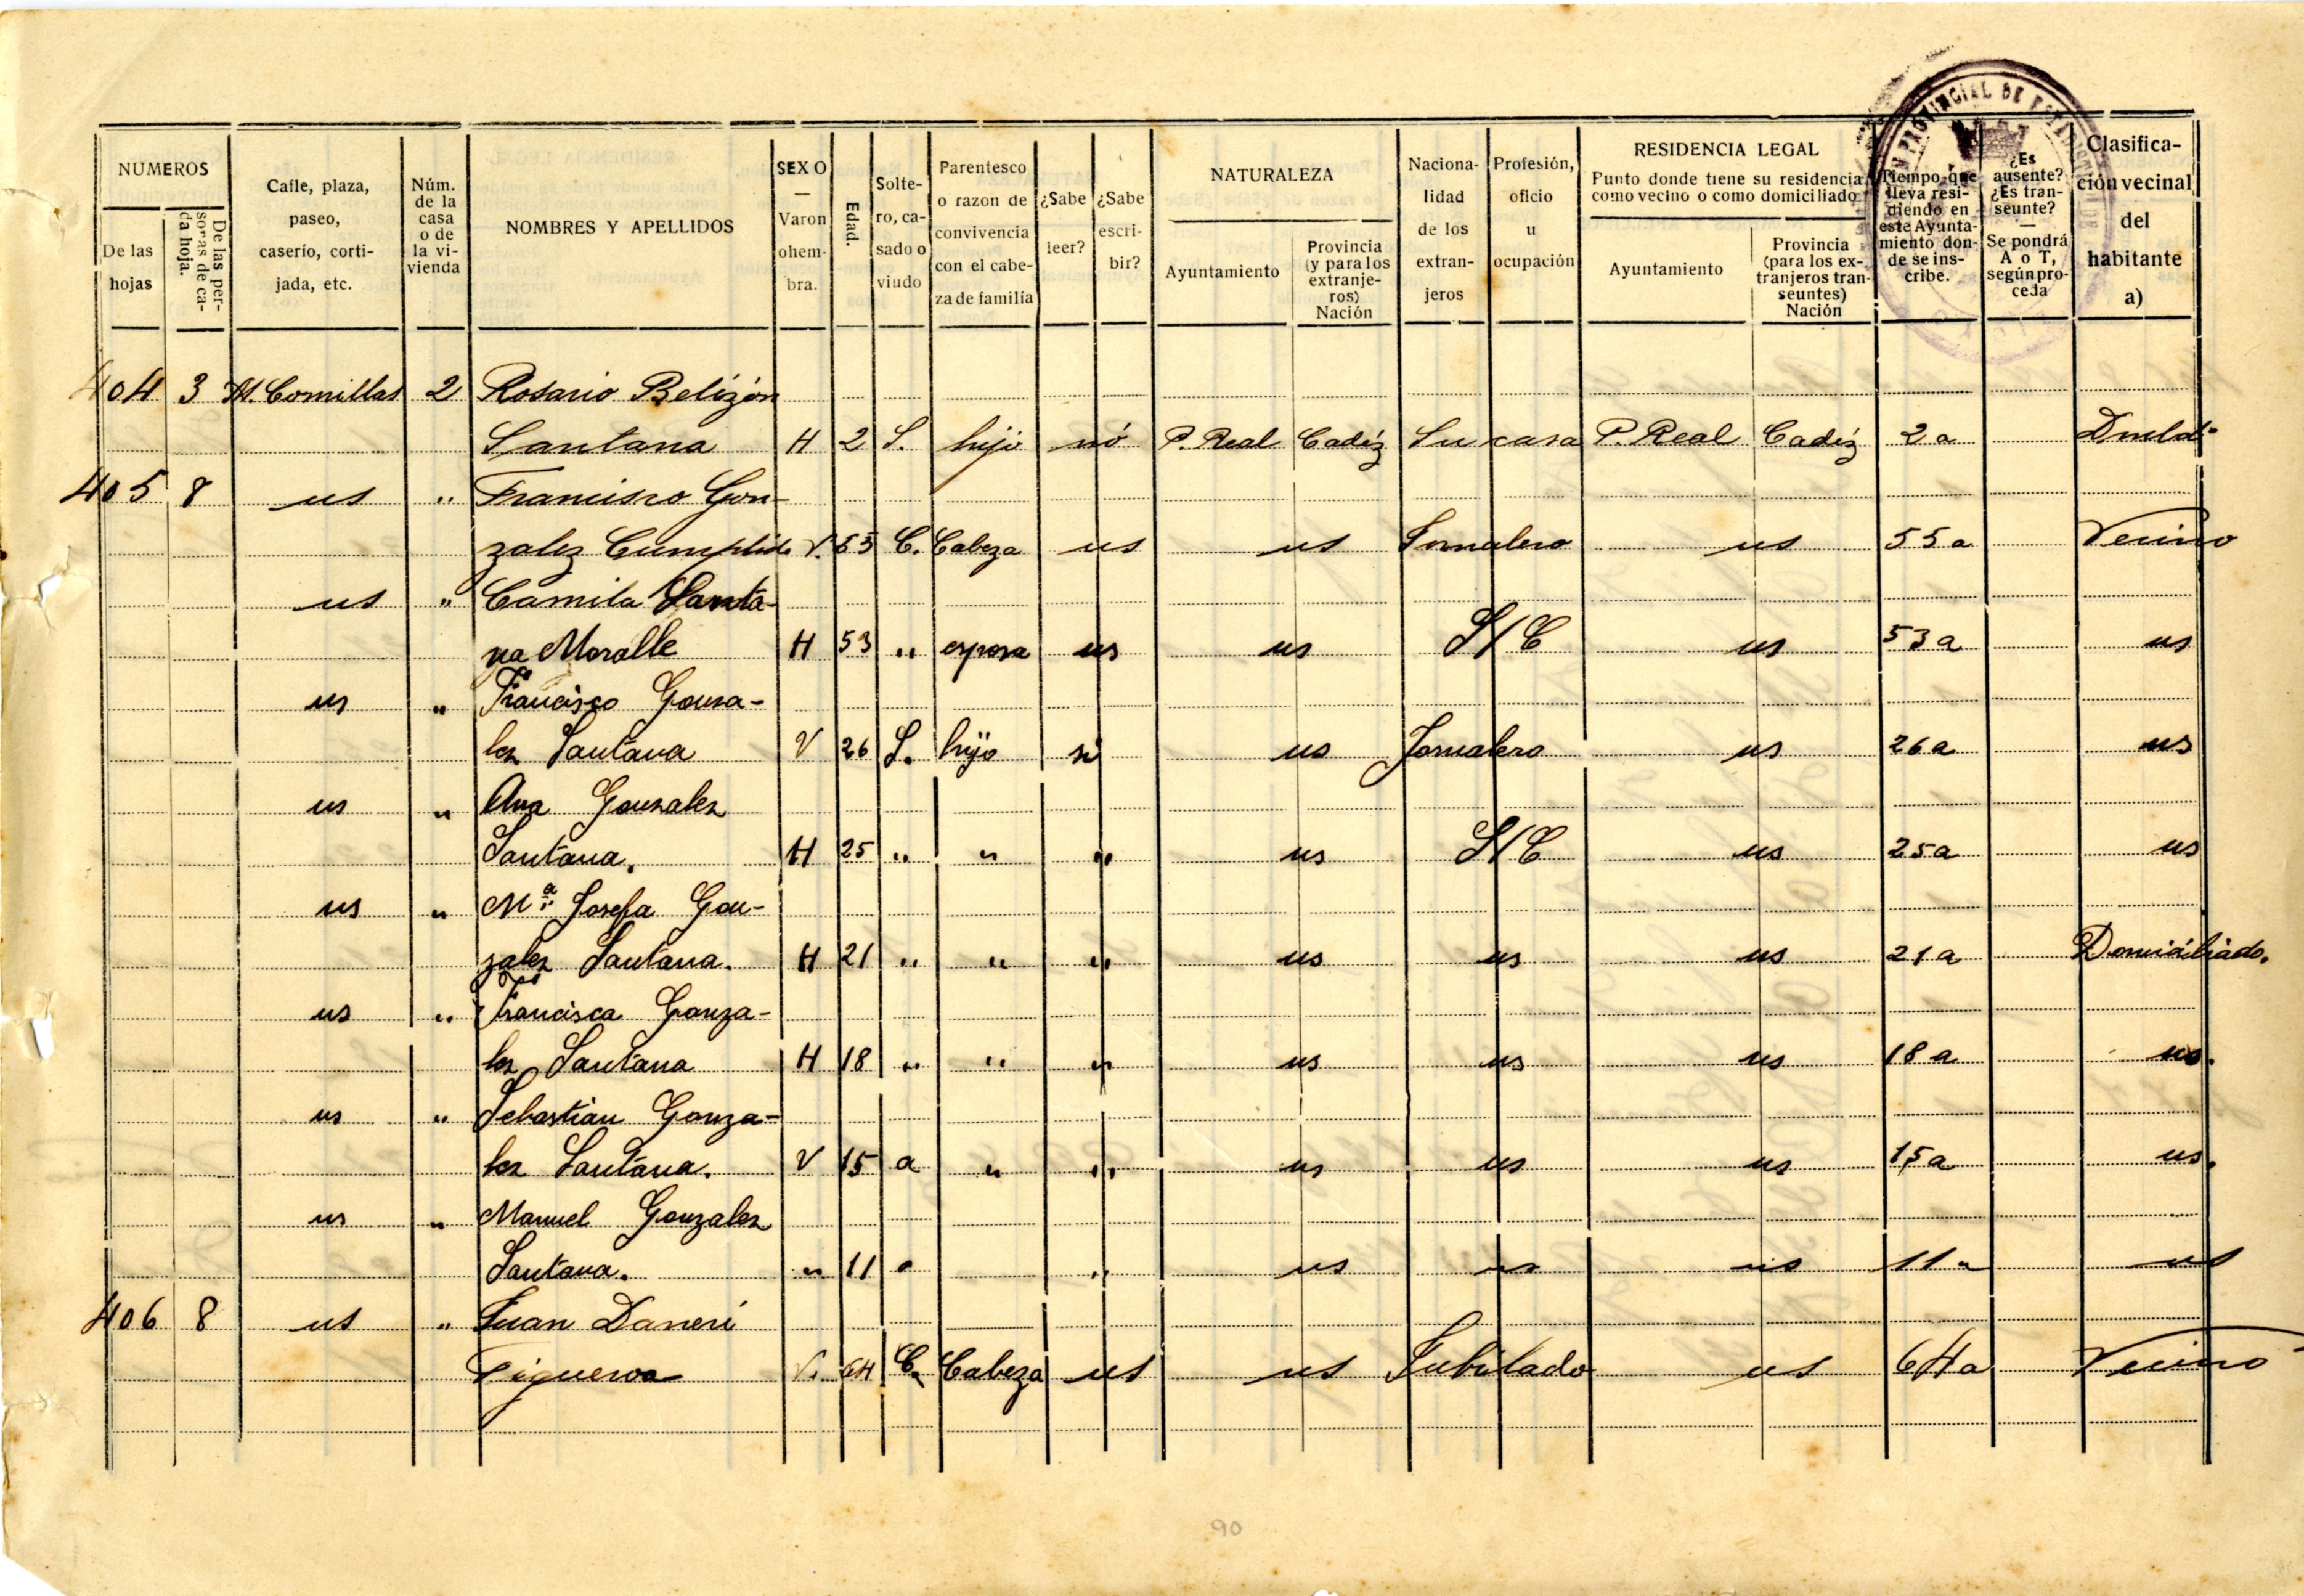 NUMEROS
De las hojas
De las personas de cada hoja.
Calle, plaza, paseo, caserio, cortijada, etc.
Núm. de la casa o de la vivienda
NOMBRES Y APELLIDOS
SEXO — Varon o hembra.
Edad.
Soltero, casado o viudo
Parentesco o razon de convivencia con el cabeza de familia
¿Sabe leer?
¿Sabe escribir?
NATURALEZA
Ayuntamiento
Provincia (y para los extranjeros) Nación
Nacionalidad de los extranjeros
Profesión, oficio u ocupación
RESIDENCIA LEGAL
Punto donde tiene su residencia como vecino o como domiciliado
Ayuntamiento
Provincia (para los extranjeros transeuntes) Nación
Tiempo que lleva residiendo en este Ayuntamiento donde se inscribe.
¿Es ausente? ¿Es transeunte? — Se pondrá A o T, según proceda
Clasificación vecinal del habitante a)
PROVINCIAL DE
404 3 M. Comillas 2 Rosario Belizón
Santana H 2 S. hijo nó P. Real Cadíz Su casa P. Real Cadíz 2a
405 8 us " Francisco Gon-
zalez Cumplido V. 55 C. Cabeza us us Jornalero us 55a Vecino
us " Camila Santa-
na Moralle H 53 " esposa us us S/C us 53a us
us " Francisco Gonza-
lez Santana V 26 S. hijo si us Jornalero us 26a us
us " Ana Gonzalez
Santana. H 25 " " " us S/C us 25a us
us " Mª Josefa Gon-
zalez Santana. H 21 " " " us us us 21a Domiciliado.
us " Francisca Gonza-
lez Santana H 18 " " " us us us 18a us.
us " Sebastian Gonza-
lez Santana. V 15 a " " us us us 15a us.
us " Manuel Gonzalez
Santana. " 11 " " us us us 11a us
406 8 us " Juan Daneri
Figueroa V. 64 C. Cabeza us us Jubilado us 64a Vecino
90